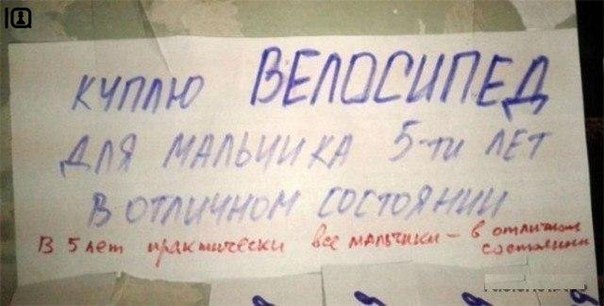 КУПЛЮ ВЕЛОСИПЕД
ДЛЯ МАЛЬЧИКА 5-ти ЛЕТ
В ОТЛИЧНОМ СОСТОЯНИИ
В 5 лет практически все мальчики – в отличном
состоянии